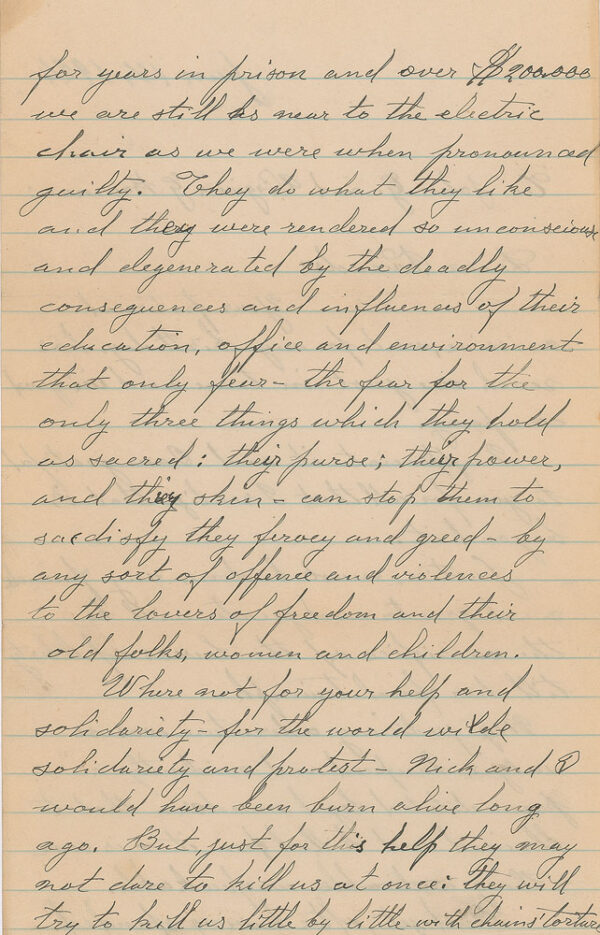 for years in prison and over $200.000
we are still as near to the electric
chair as we were when pronounced
guilty. They do what they like
and they were rendered so unconscious
and degenerated by the deadly
consequences and influences of their
education, office and environment
that only fear - the fear for the
only three things which they hold
as sacred: their purse; their power,
and they skin - can stop them to
sadisfy they fervey and greed - by
any sort of offence and violences
to the lovers of freedom and their
old folks, women and children.
Where not for your help and
solidariety - for the world wilde
solidariety and protest - Nick and I
would have been burn alive long
ago. But, just for this help they may
not dare to kill us at once: they will
try to kill us little by little with chains' torture